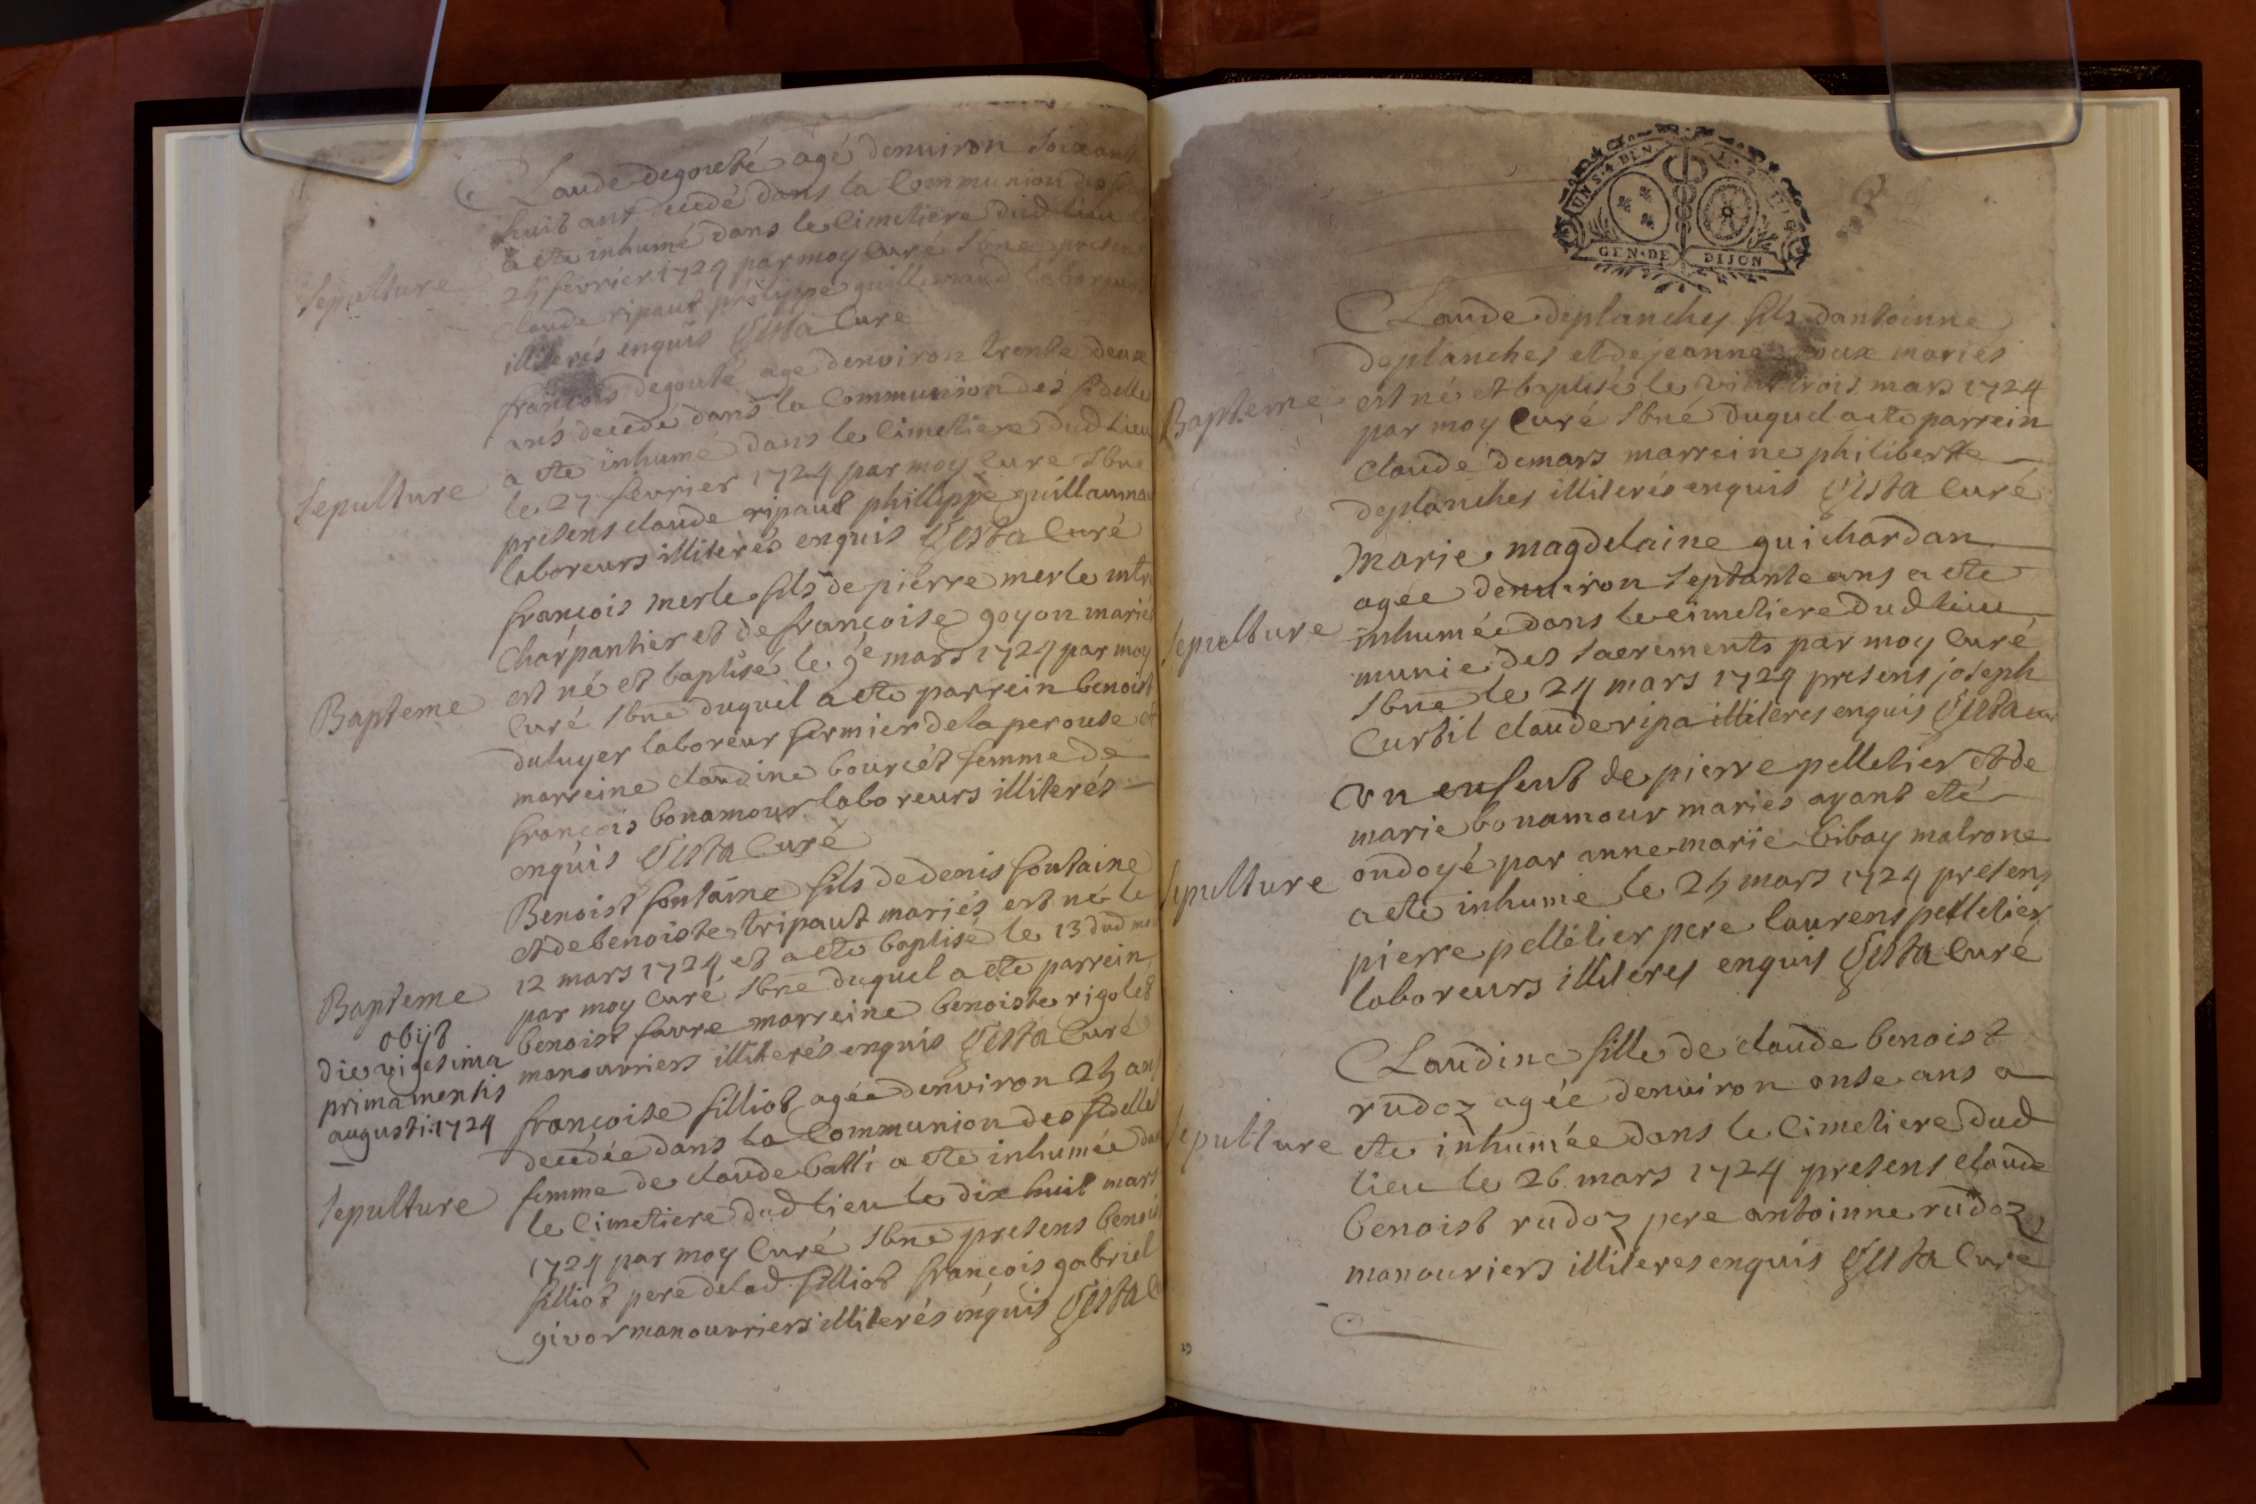 Claude degouté agé denuiron soixant
huit ans decedé dans la Communion des
a ete inhumé dans le Cimetiere dud lieu
Sepulture
25 fevrier 1724 par moy Curé Sbné presens
claude ripaut philippe guillemaud laboreurs
illiterés enquis Gesta Curé
françois degouté agé denviron trente deux
ans decedé dans la Communion des fidelle
a ete inhumé dans le Cimetiere dud lieu
Sepulture
le 27 fevrier 1724 par moy Cure Sbne
presens claude ripaut philippe guillauma
laboreurs illiterés enquis Gesta Curé
françois merle fils de pierre merle mtr
Charpantier et de françoise goyon mariés
Bapteme
est né et baptisé le 9e mars 1724 par moy
Curé Sbne duquel a ete parrein benoist
duluyer laboreur fermier de la perouse et
marreine claudine bourcét femme de
françois bonamour laboreurs illiterés
enquis Gesta Curé
Benoist fontaine fils de denis fontaine
et de benoiste tripaut mariés est né le
Bapteme
12 mars 1724 et a ete baptisé le 13 dud m
par moy Curé Sbne duquel a ete parrein
benoist favre marreine benoiste rigolet
manouvriers illiterés enquis Gesta Curé
obijt
die vigesima
prima mensis
augusti 1724
françoise filliot agée denviron 25 ans
decedée dans la Communion des fidelle
Sepulture
femme de claude batti a ete inhumée dan
le Cimetiere dud lieu le dix huit mars
1724 par moy Curé Sbne presens benoi
filliot pere de lad filliot françois gabriel
givor manouvriers illiterés enquis Gesta C
UN S. 4 DEN.
GEN. DE DIJON
Claude deplanches fils dantoinne
deplanches et de jeanne roux mariés
Bapteme
est né et baptisé le vint trois mars 1724
par moy Curé Sbné duquel a ete parrein
claude demars marreine philiberte
deplanches illiterés enquis Gesta Curé
Marie magdelaine guichardan
agée denuiron septante ans a ete
Sepulture
inhumée dans le cimetiere dud lieu
munie des sacrements par moy Curé
Sbne le 24 mars 1724 presens joseph
Curtil claude ripa illiteres enquis Gesta cur
Un enfent de pierre pelletier et de
marie bonamour mariés ayant eté
Sepulture
ondoyé par anne marie bibay matrone
a ete inhumé le 25 mars 1724 presens
pierre pelletier pere laurens pelletier
laboreurs illiteres enquis Gesta Curé
Claudine fille de claude benoist
rudoz agée denuiron onse ans a
Sepulture
ete inhumée dans le Cimetiere dud
lieu le 26 mars 1724 presens claude
benoist rudoz pere antoinne rudoz
manouriers illiteres enquis Gesta Curé